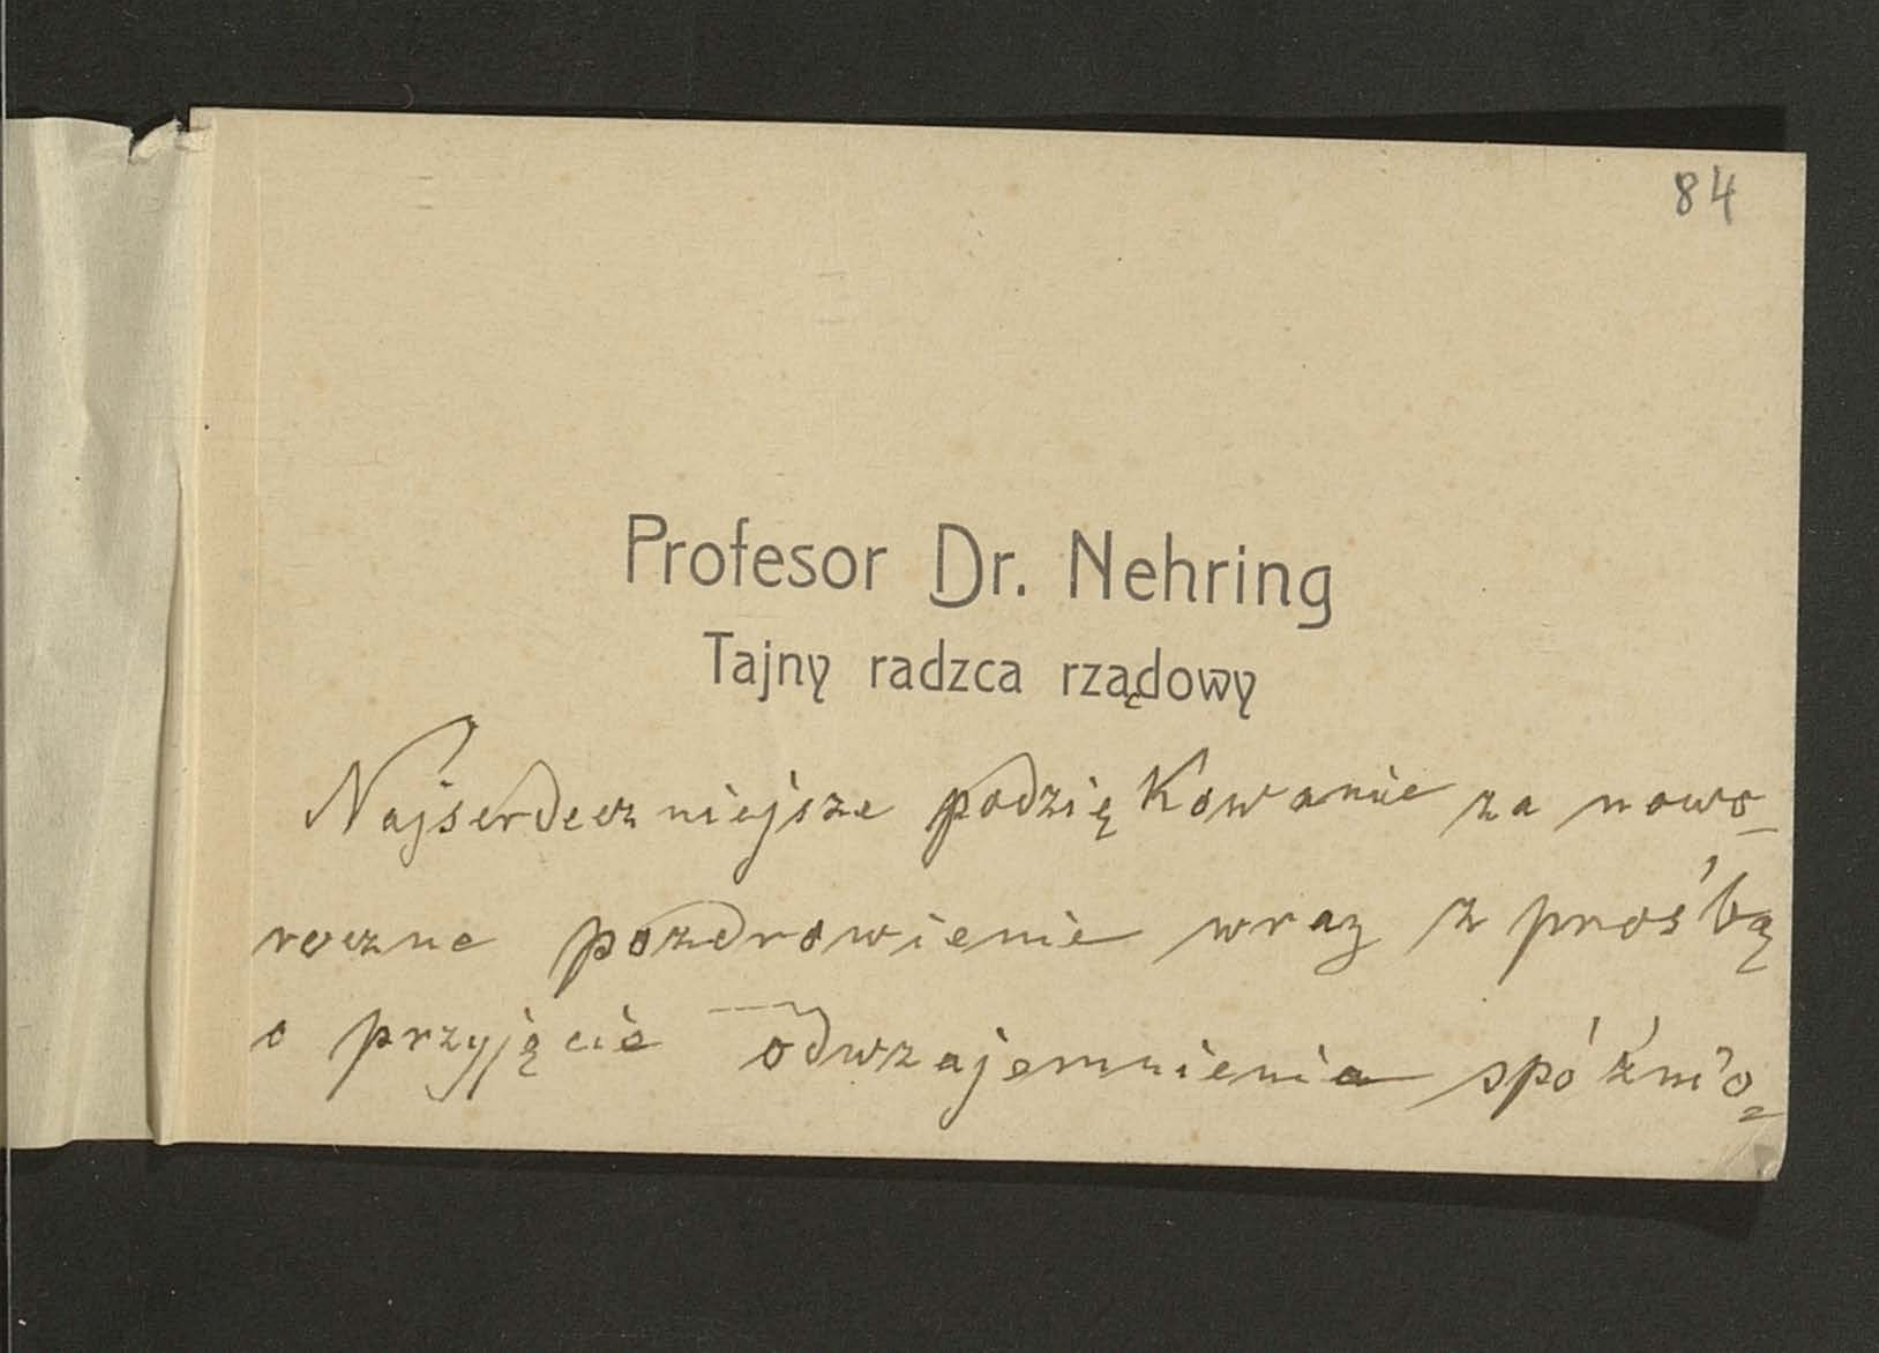 84
Profesor Dr. Nehring
Tajny radzca rządowy
Najserdeczniejsze podziękowanie za nowo-
roczne pozdrowienie wraz z prośbą
o przyjęcie odwzajemnienia spóźnio-